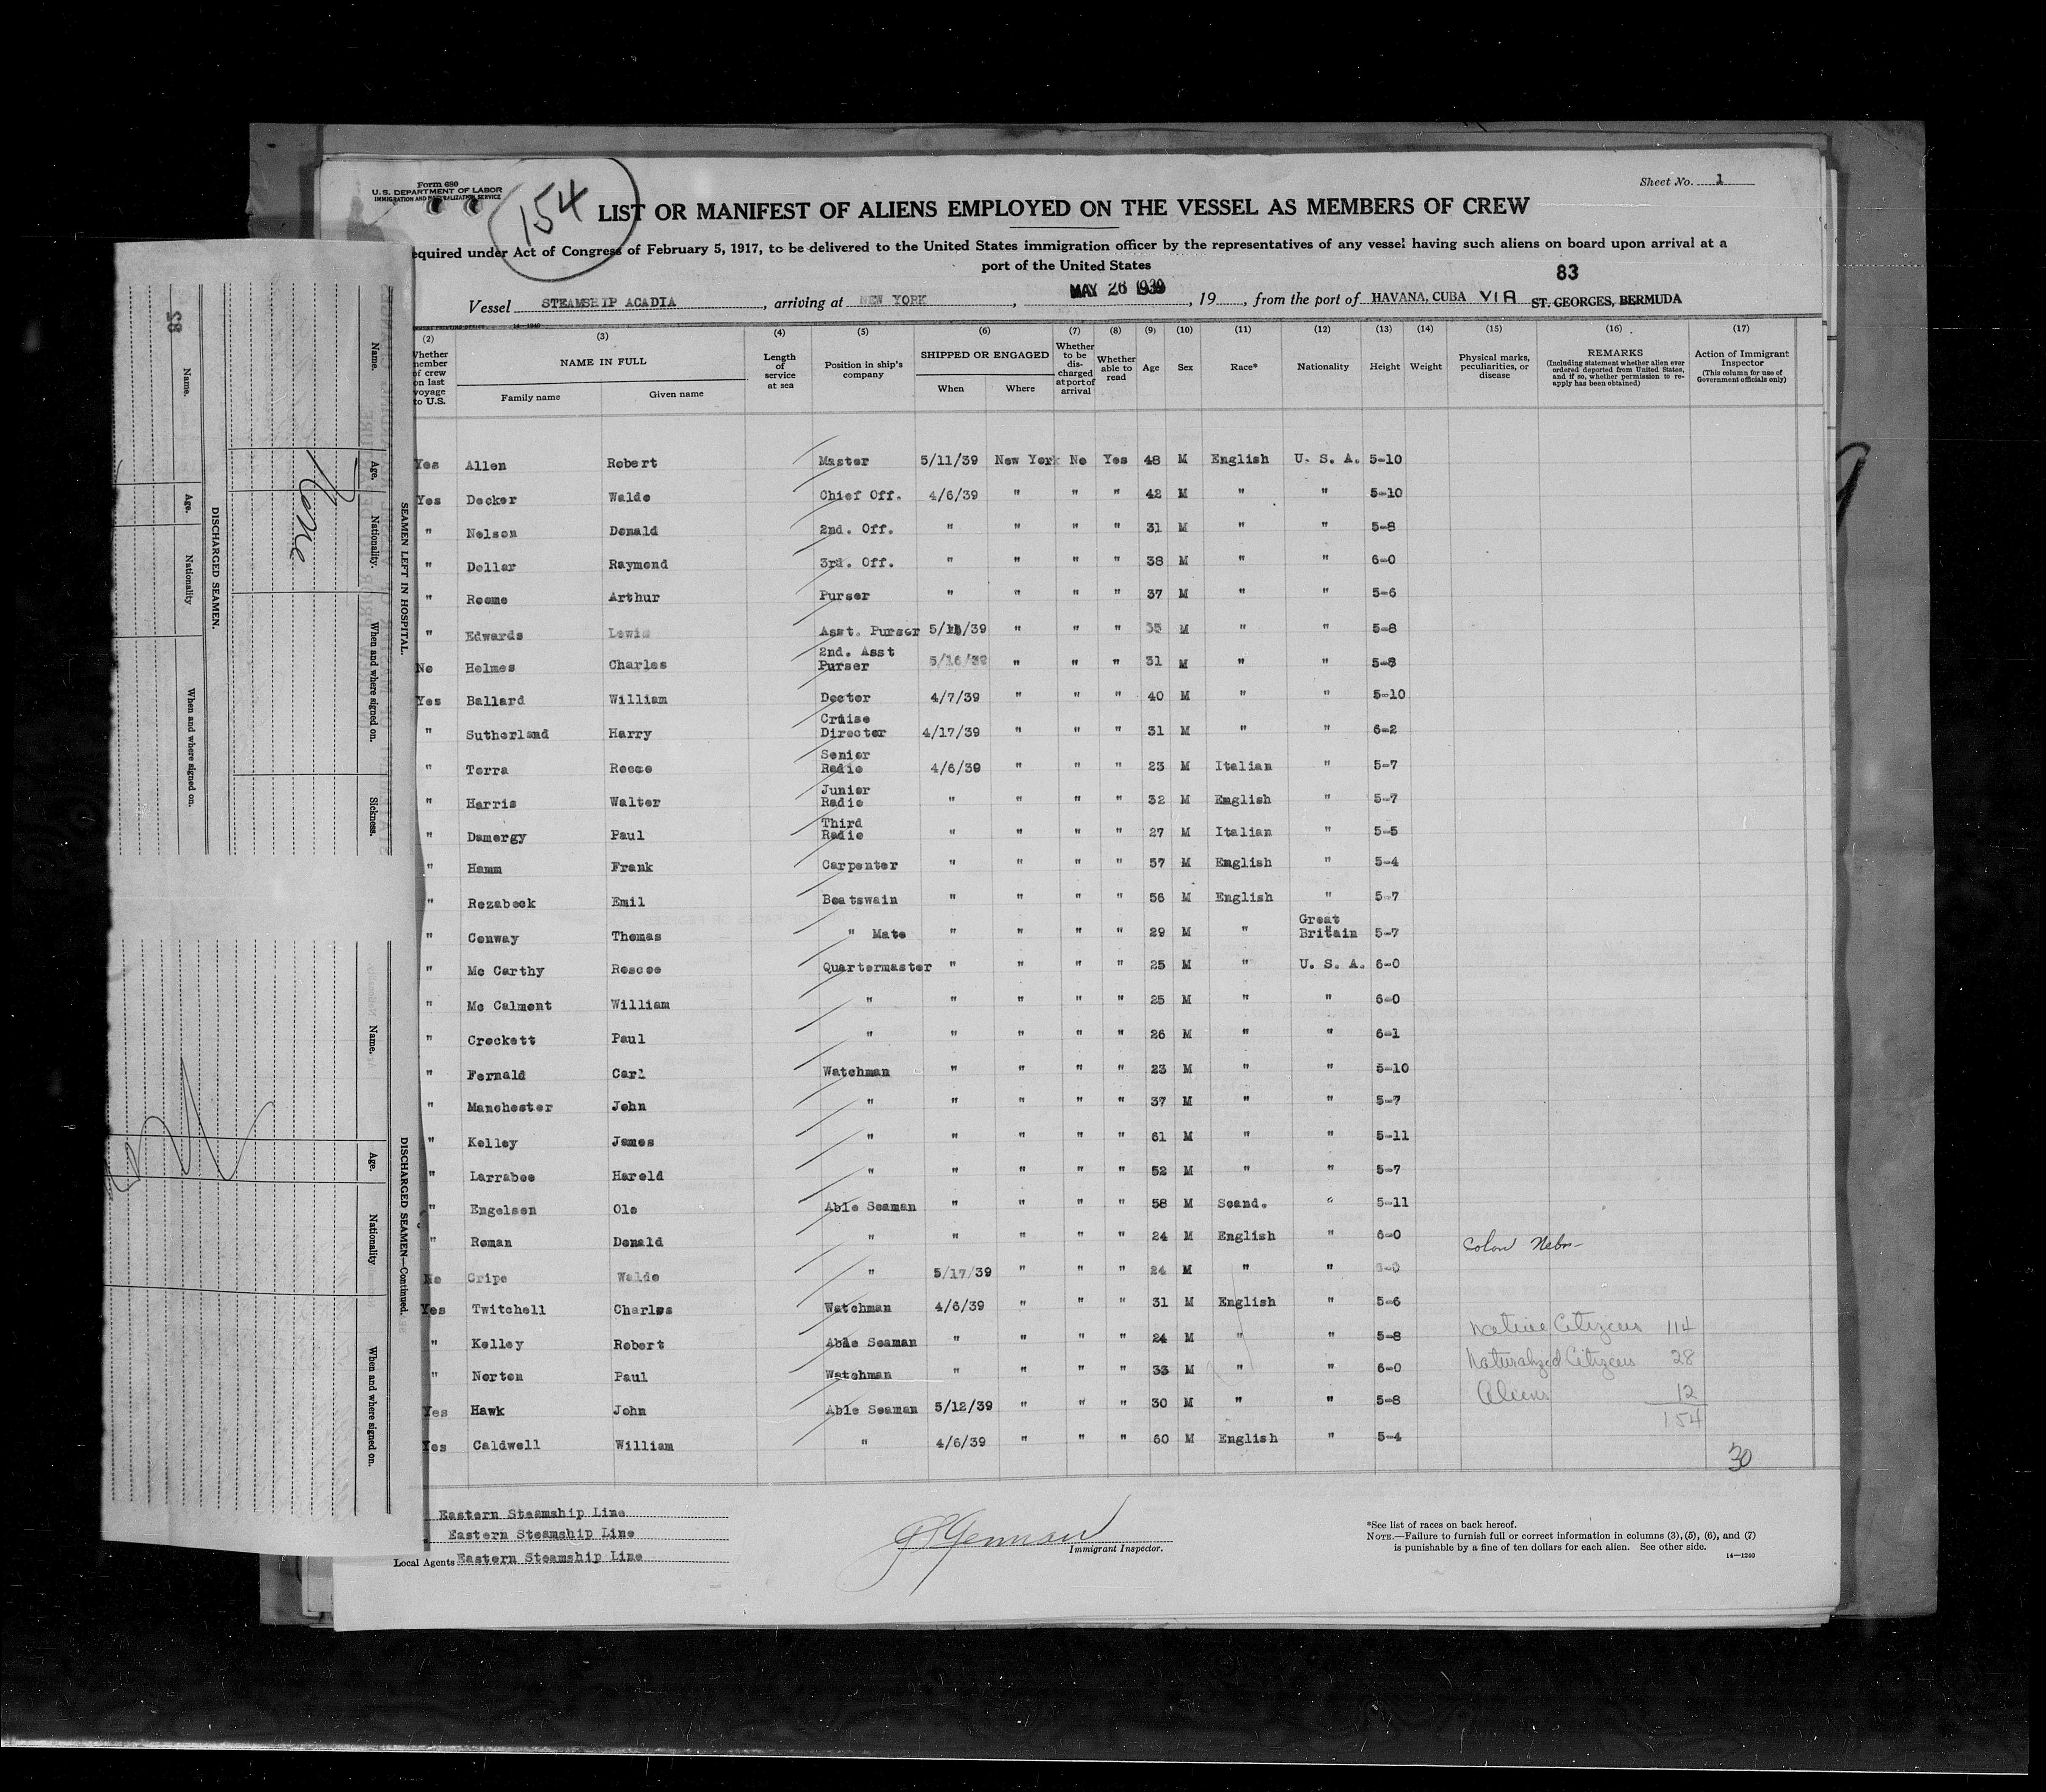 Form 680
U. S. DEPARTMENT OF LABOR
IMMIGRATION AND NATURALIZATION SERVICE
154
Sheet No. 1
LIST OR MANIFEST OF ALIENS EMPLOYED ON THE VESSEL AS MEMBERS OF CREW
equired under Act of Congress of February 5, 1917, to be delivered to the United States immigration officer by the representatives of any vessel having such aliens on board upon arrival at a
port of the United States
83
Vessel STEAMSHIP ACADIA, arriving at NEW YORK, MAY 26 1939, 19, from the port of HAVANA, CUBA VIA ST. GEORGES, BERMUDA
14—1240
(2) (3) (4) (5) (6) (7) (8) (9) (10) (11) (12) (13) (14) (15) (16) (17)
Whether member of crew on last voyage to U.S.
NAME IN FULL
Family name
Given name
Length of service at sea
Position in ship's company
SHIPPED OR ENGAGED
When
Where
Whether to be discharged at port of arrival
Whether able to read
Age
Sex
Race*
Nationality
Height
Weight
Physical marks, peculiarities, or disease
REMARKS
(Including statement whether alien ever ordered deported from United States, and if so, whether permission to re-apply has been obtained)
Action of Immigrant Inspector
(This column for use of Government officials only)
Yes Allen Robert Master 5/11/39 New York No Yes 48 M English U. S. A. 5-10
Yes Decker Waldo Chief Off. 4/6/39 " " " 42 M " " 5-10
" Nelson Donald 2nd. Off. " " " " 31 M " " 5-8
" Dollar Raymond 3rd. Off. " " " " 38 M " " 6-0
" Roome Arthur Purser " " " " 37 M " " 5-6
" Edwards Lewis Asst. Purser 5/11/39 " " " 35 M " " 5-8
No Holmes Charles 2nd. Asst Purser 5/16/39 " " " 31 M " " 5-8
Yes Ballard William Doctor 4/7/39 " " " 40 M " " 5-10
" Sutherland Harry Cruise Director 4/17/39 " " " 31 M " " 6-2
" Terra Rocco Senior Radio 4/6/39 " " " 23 M Italian " 5-7
" Harris Walter Junior Radio " " " " 32 M English " 5-7
" Damergy Paul Third Radio " " " " 27 M Italian " 5-5
" Hamm Frank Carpenter " " " " 57 M English " 5-4
" Rezabeck Emil Boatswain " " " " 56 M English " 5-7
" Conway Thomas " Mate " " " " 29 M " Great Britain 5-7
" Mc Carthy Roscoe Quartermaster " " " " 25 M " U. S. A. 6-0
" Mc Calmont William " " " " " 25 M " " 6-0
" Crockett Paul " " " " " 26 M " " 6-1
" Fernald Carl Watchman " " " " 23 M " " 5-10
" Manchester John " " " " " 37 M " " 5-7
" Kelley James " " " " " 61 M " " 5-11
" Larrabee Harold " " " " " 52 M " " 5-7
" Engelsen Ole Able Seaman " " " " 58 M Scand. " 5-11
" Roman Donald " " " " " 24 M English " 6-0
Colon Nebr
No Cripe Waldo " 5/17/39 " " " 24 M " "
Yes Twitchell Charles Watchman 4/6/39 " " " 31 M English " 5-6
" Kelley Robert Able Seaman " " " " 24 M " " 5-8
" Norton Paul Watchman " " " " 33 M " " 6-0
Yes Hawk John Able Seaman 5/12/39 " " " 30 M " " 5-8
Yes Caldwell William " 4/6/39 " " " 60 M English " 5-4
Native Citizens 114
Naturalized Citizens 28
Aliens 12
154
30
Eastern Steamship Line
Eastern Steamship Line
Local Agents Eastern Steamship Line
Immigrant Inspector.
*See list of races on back hereof.
NOTE.—Failure to furnish full or correct information in columns (3), (5), (6), and (7)
is punishable by a fine of ten dollars for each alien. See other side.
14—1240
82
SEAMEN LEFT IN HOSPITAL.
Name. Age. Nationality. When and where signed on. Sickness.
None
DISCHARGED SEAMEN.
Name. Age. Nationality When and where signed on.
DISCHARGED SEAMEN—Continued.
Name. Age. Nationality When and where signed on.